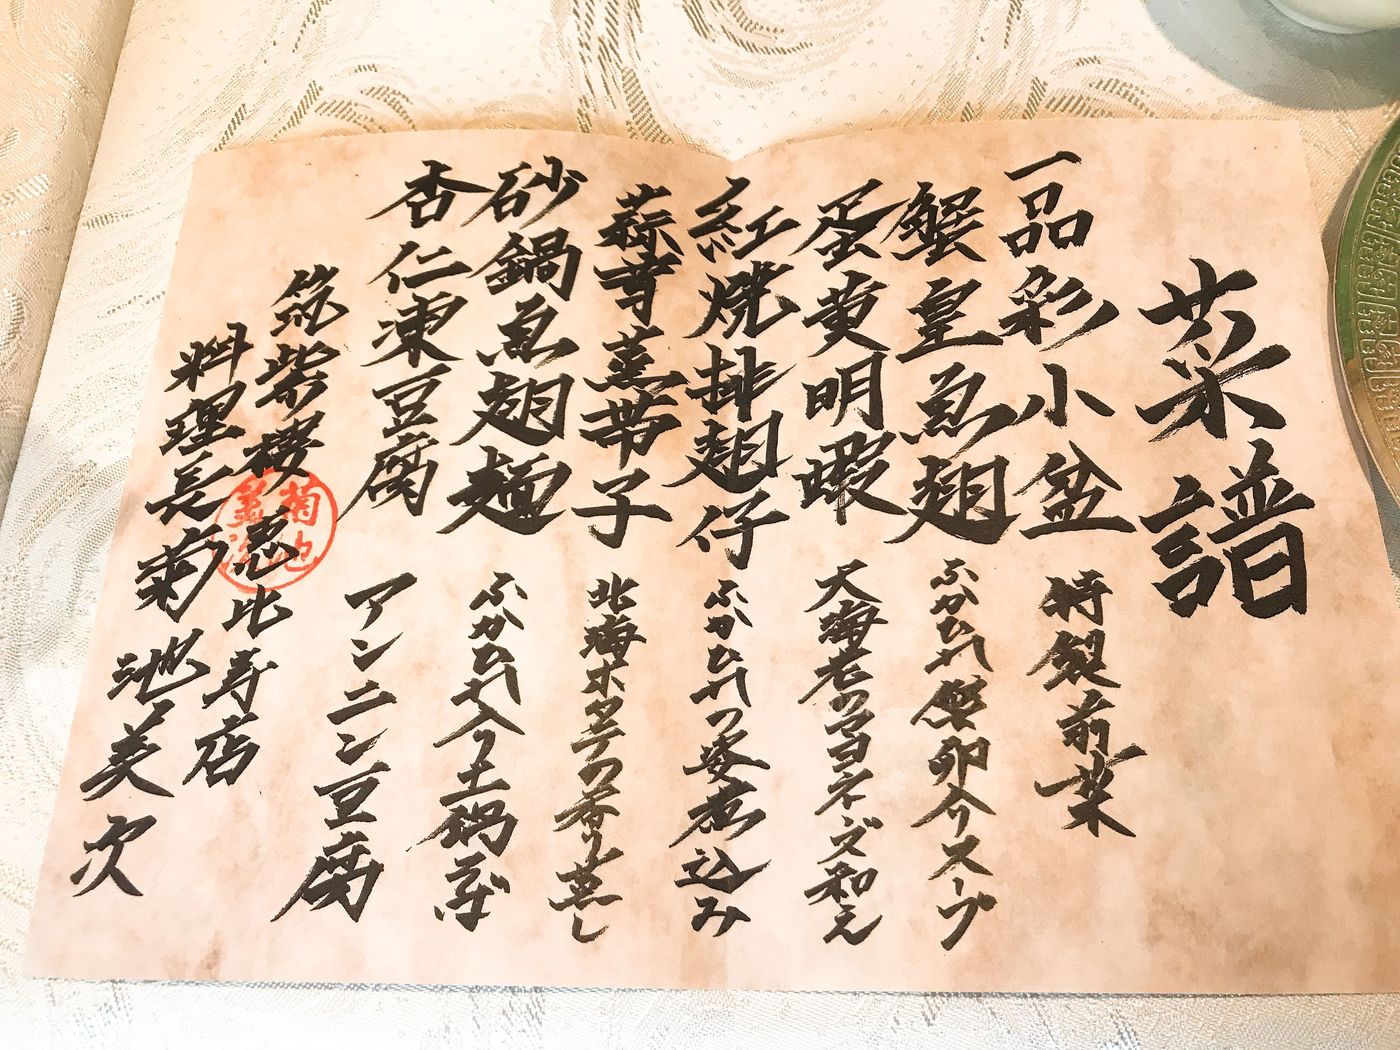 菜譜
一品彩小盆 特製前菜
蟹皇魚翅 ふかひれ蟹卵入りスープ
蛋黄明蝦 大海老のマヨネーズ和え
紅焼排翅仔 ふかひれの姿煮込み
蒜茸蒸帯子 北海ホタテの香り蒸し
砂鍋魚翅麺 ふかひれ入り土鍋そば
杏仁凍豆腐 アンニン豆腐
筑紫樓恵比寿店
料理長菊池美次
菊池